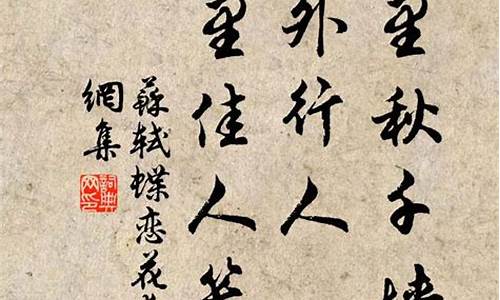 里秋千
外行人
里佳人
蘇軾蝶恋花
網集